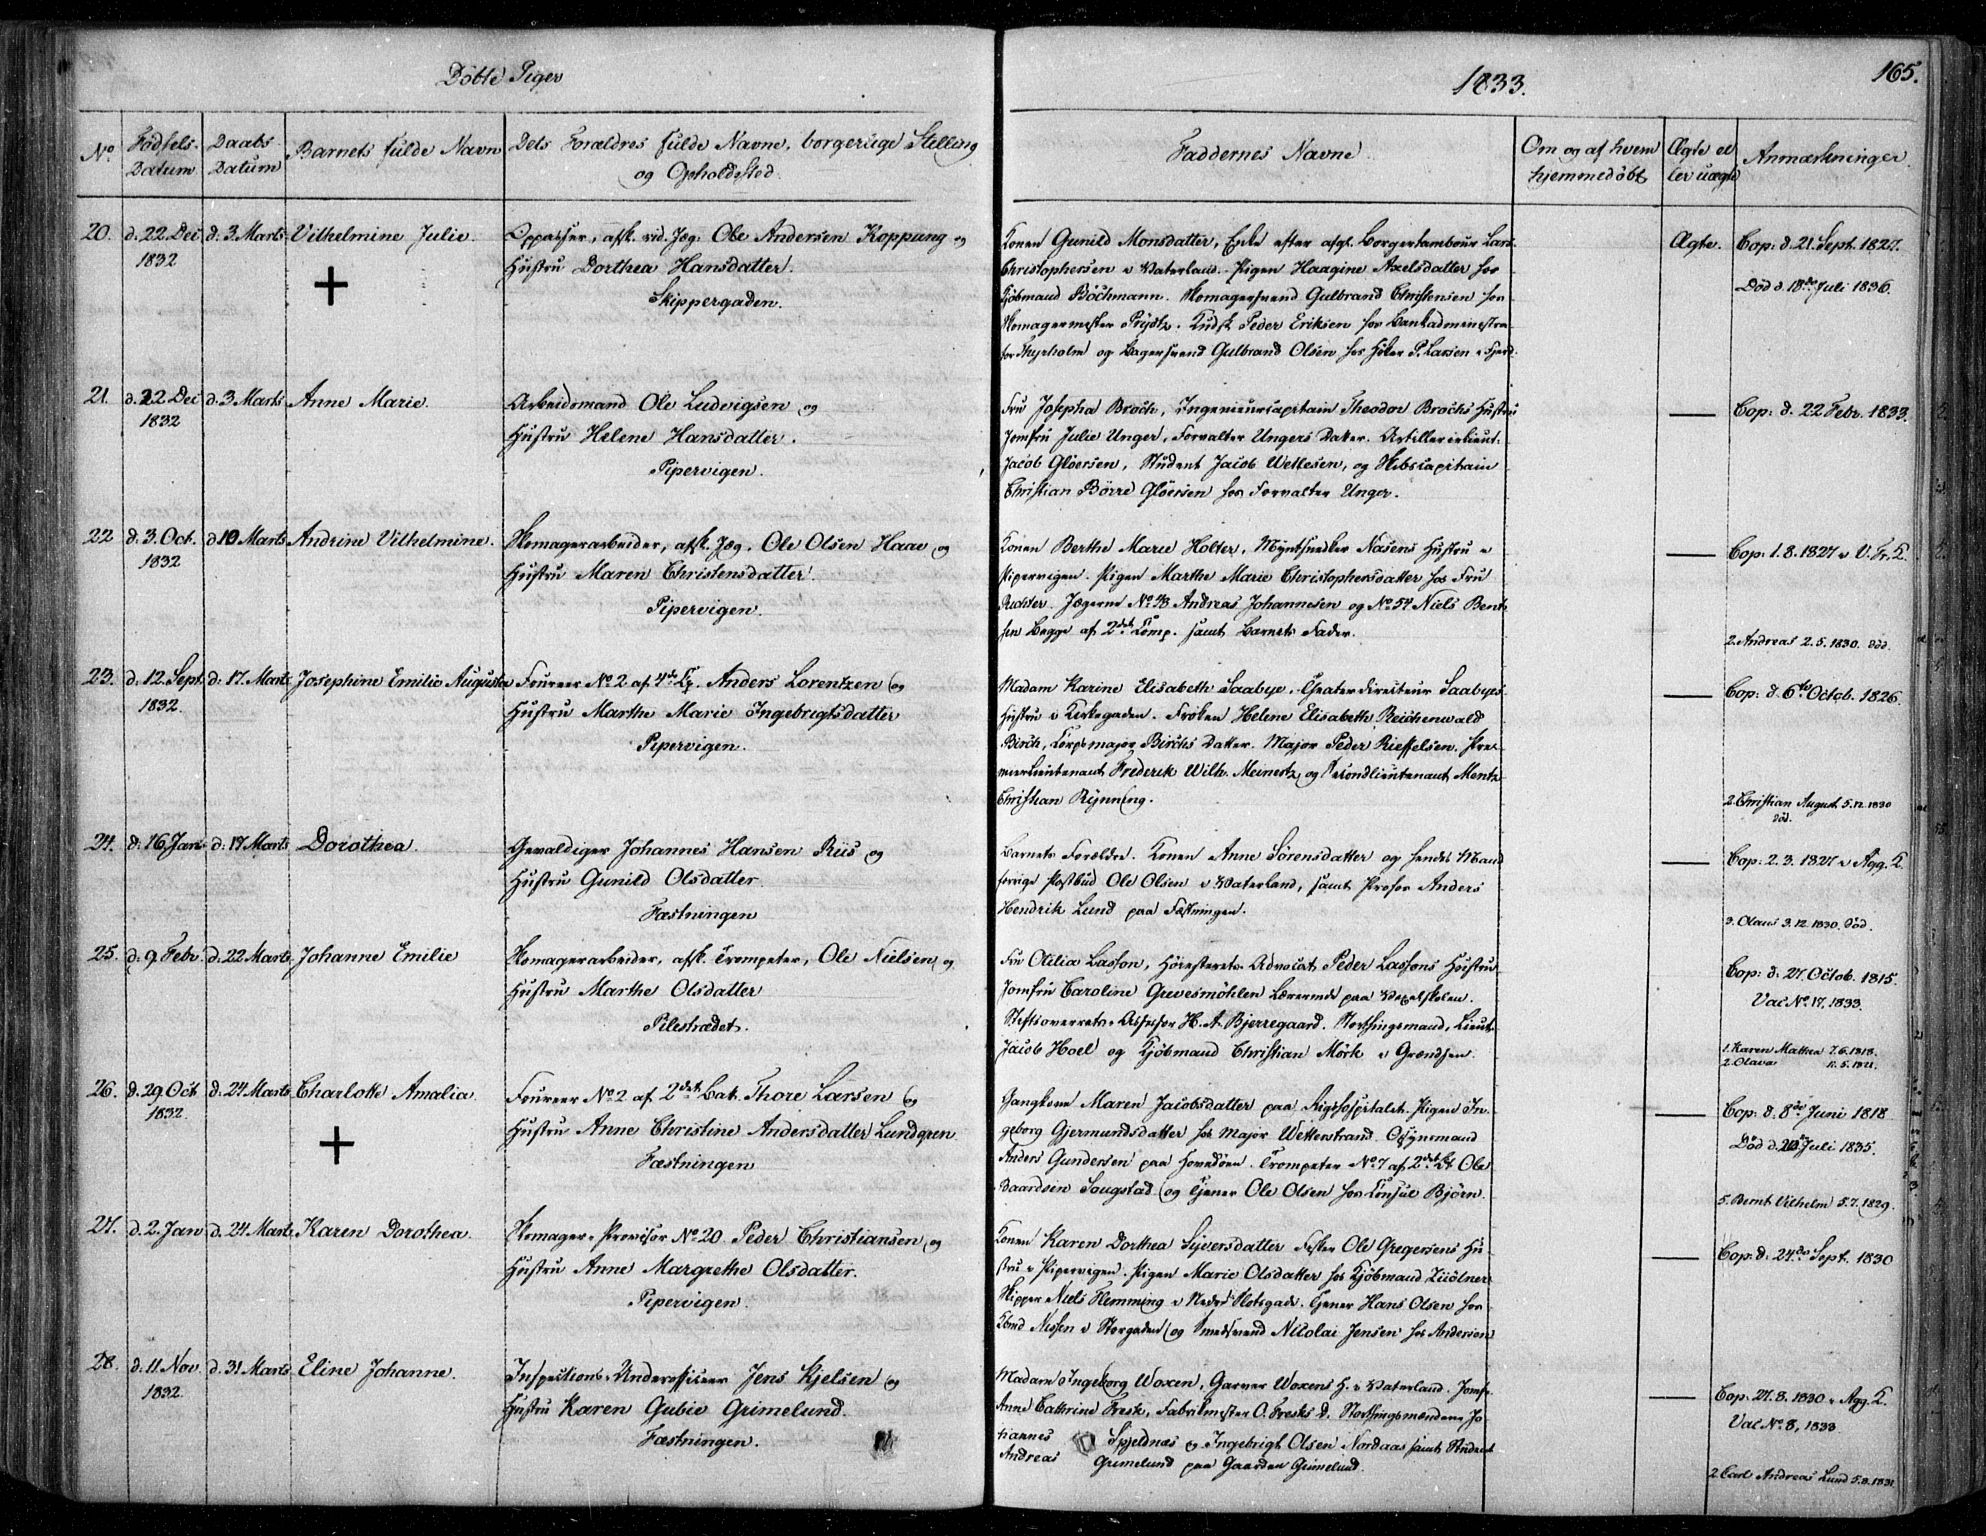 Döbte Piger
1833.
165.
No
Födsels-Datum
Daabs Datum
Barnets fulde Navn
Dets Forældres fulde Navne, borgerlige Stilling og Opholdssted.
Faddernes Navne.
Om og af hvem hjemmedöbt
Ægte eller uægte
Anmærkninger.
20. d. 22 Dec 1832 d. 3 Marts Vilhelmine Julie.
Oppasser, afsk. vid. Jæg. Ole Andersen Koppang og
Hustru Dorthea Hansdatter.
Skippergaden.
Konen Gunild Monsdatter, Enke efter afgl. Borgertambour Lars
Christophersen i Vaterland. Pigen Haagine Axelsdatter hos
Kjöbmand Böchmann. Skomagersvend Gulbrand Christensen hos
Skomagermester Prydtz. Kudsk Peder Eriksen hos Bankadministra-
tor Thyrholm og Bagersvend Gulbrand Olsen hos Höker P. Larsen i Fjerd.
Ægte.
Cop: d. 21. Sept. 1827.
Död d. 18de Juli 1836.
21. d. 22 Dec 1832 d. 3 Marts Anne Marie.
Arbeidsmand Ole Ludvigsen og
Hustru Helene Hansdatter.
Pipervigen.
Fru Josepha Broch, Ingenieurcapitain Theodor Brochs Hustru
Jomfru Julie Unger, Forvalter Ungers Datter. Artillerielieut.
Jacob Glöersen, Student Jacob Wetlesen, og Skibscapitain
Christian Börre Glöersen hos Forvalter Unger.
Cop: d. 22 Febr. 1833.
22 d. 3. Oct. 1832 d 10 Marts Andrine Vilhelmine.
Skomagerarbeider, afsk. Jæg. Ole Olsen Haae og
Hustru Maren Christensdatter.
Pipervigen.
Konen Berthe Marie Holter, Myntsnedker Nasens Hustru i
Pipervigen. Pigen Marthe Marie Christophersdatter hos Fru
Richter. Jægerne No 43 Andreas Johannesen og No 54 Niels Bent-
sen begge af 2det Comp. samt Barnets Fader.
Cop: 1.8.1827 i V. Fr. K.
2. Andreas 2.5.1830. död.
23. d. 12. Sept 1832. d. 17 Marts Josephine Emilie Augusta
Foureer No 2 af 4de Cp. Anders Lorentzen og
Hustru Marthe Marie Ingebrigtsdatter
Pipervigen.
Madam Karine Elisabeth Saabye, Theaterdirecteur Saabyes
Hustru i Kirkegaden. Fröken Helene Elisabeth Reichenwald
Birch, Corpsmajor Birchs Datter. Major Peder Rieffelsen. Pre-
mierlieutenant Frederik Wilh. Meinertz og Secondlieutenant Mentz
Christian Rynning.
Cop: d. 6te Octob. 1826.
2. Christian August 5.12.1830
död.
24. d. 16. Jan d. 17 Marts Dorothea.
Gevaldiger Johannes Hansen Riis og
Hustru Gunild Olsdatter.
Fæstningen
Barnets Forældre. Konen Anne Sörensdatter og hendes Mand
forrige Postbud Ole Olsen i Vaterland, samt Profos Anders
Hendrik Lund paa Fæstningen.
Cop: 2.3.1827 i Agg. K.
3. Olaus 3.12.1830. död.
25. d. 9 Febr. d. 22 Marts Johanne Emilie
Skomagerarbeider, afsk. Trompeter, Ole Nielsen og
Hustru Marthe Olsdatter
Pilestrædet.
Fru Otilia Lasson, Höiesterets-Advocat Peder Lassons Hustru
Jomfru Caroline Grevesmöhlen Lærerinde paa Vexelskolen.
Stiftsoverrets-Assessor H. A. Bjerregaard. Storthingsmand, Lieut.
Jacob Hoel og Kjöbmand Christian Mörk i Grændsen.
Cop: d. 27. Octob. 1815.
Vac No. 17. 1833.
1. Karen Mathea 7.6.1818.
2. Olava 11.5.1821.
26. d. 29. Oct 1832. d. 24 Marts Charlotte Amalia.
Foureer No 2 af 2det Bat. Thore Larsen og
Hustru Anne Christine Andersdatter Lundgren
Fæstningen
Gangkone Maren Jacobsdatter paa Rigshospitalet. Pigen In-
geborg Gjermundsdatter hos Major Wetterstrand. Opsynsmand
Anders Gundersen paa Hovedöen. Trompeter No 7 af 2det Bt Ole
Baardsen Saugstad og Tjener Ole Olsen hos Consul Björn.
Cop: d. 8de Juni 1818
Död d. Juli 1835.
5. Bernt Vilhelm 5.7.1829.
27. d. 2. Jan d. 24 Marts Karen Dorothea.
Skomager-Provisor No 20. Peder Christiansen og
Hustru Anne Margrethe Olsdatter.
Pipervigen.
Konen Karen Dorthea Syversdatter Fisker Ole Gregersens Hu-
stru i Pipervigen. Pigen Marie Olsdatter hos Kjöbmand Züölner
Skipper Niels Flemming i Nedre Slotsgade. Tjener Hans Olsen hos
Kbmd Nissen i Storgaden og Smedsvend Nicolai Jensen hos Andersen
Cop: d. 24de Sept. 1830
28. d. 11 Nov. 1832. d. 31 Marts Eline Johanne.
Inspections-Underofficeer Jens Kjelsen og
Hustru Karen Gubie Grimelund.
Fæstningen.
Madam Ingeborg Woxen, Garver Woxens H. i Vaterland. Jomfr.
Anne Cathrine Fresk, Fabrikmester O. Fresks D. Storthingsmændene Jo-
hannes Spjeldnæs og Ingebrigt Olsen Nordaas samt Student
Andreas Grimelund paa Gaarden Grimelund.
Cop: 27.8.1830 i Agg. K.
Vac No. 8, 1833
2. Carl Andreas Lund 5.8.1831